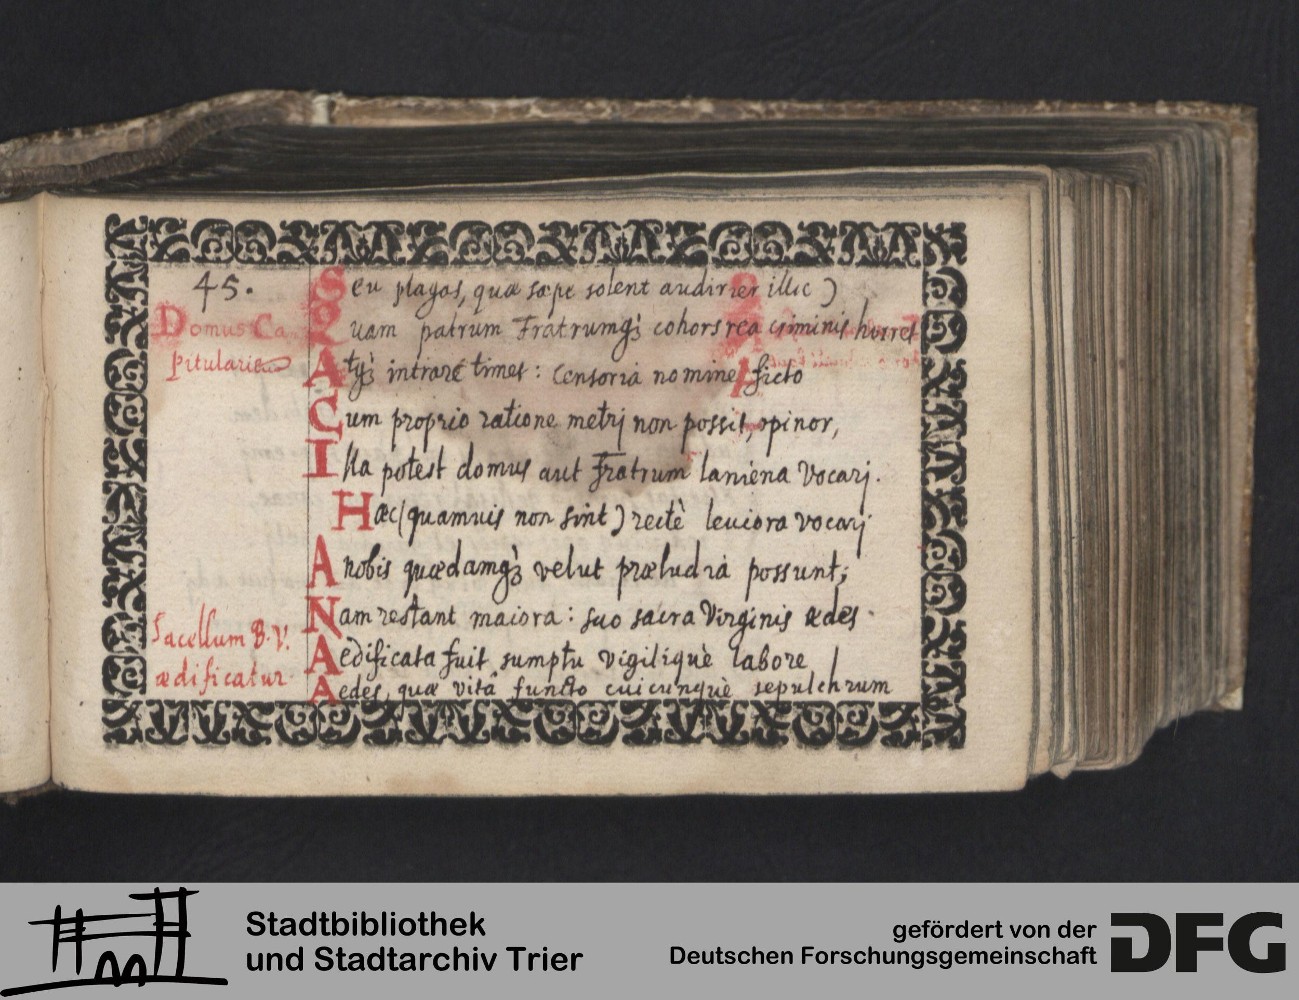 45.
Domus Ca
pitularis
Seu plagas, quæ sæpe solent audirier illic)
Quam patrum Fratrumqꝫ cohors rea criminis horret
Atqꝫ intrare timet: Censoria nomine ficto
Cum proprio ratione metrj non possit, opinor,
Illa potest domus aut Fratrum laniena vocarj.
Hæc (quamuis non sint) rectè leuiora vocarj
A nobis quædamqꝫ velut præludia possunt;
Nam restant maiora: suo sacra Virginis ædes
Sacellum B. V.
ædificatur
Aedificata fuit sumptu vigiliquè labore
Aedes, quæ vitâ functo cuicunquè sepulchrum
Stadtbibliothek
und Stadtarchiv Trier
gefördert von der
Deutschen Forschungsgemeinschaft
DFG